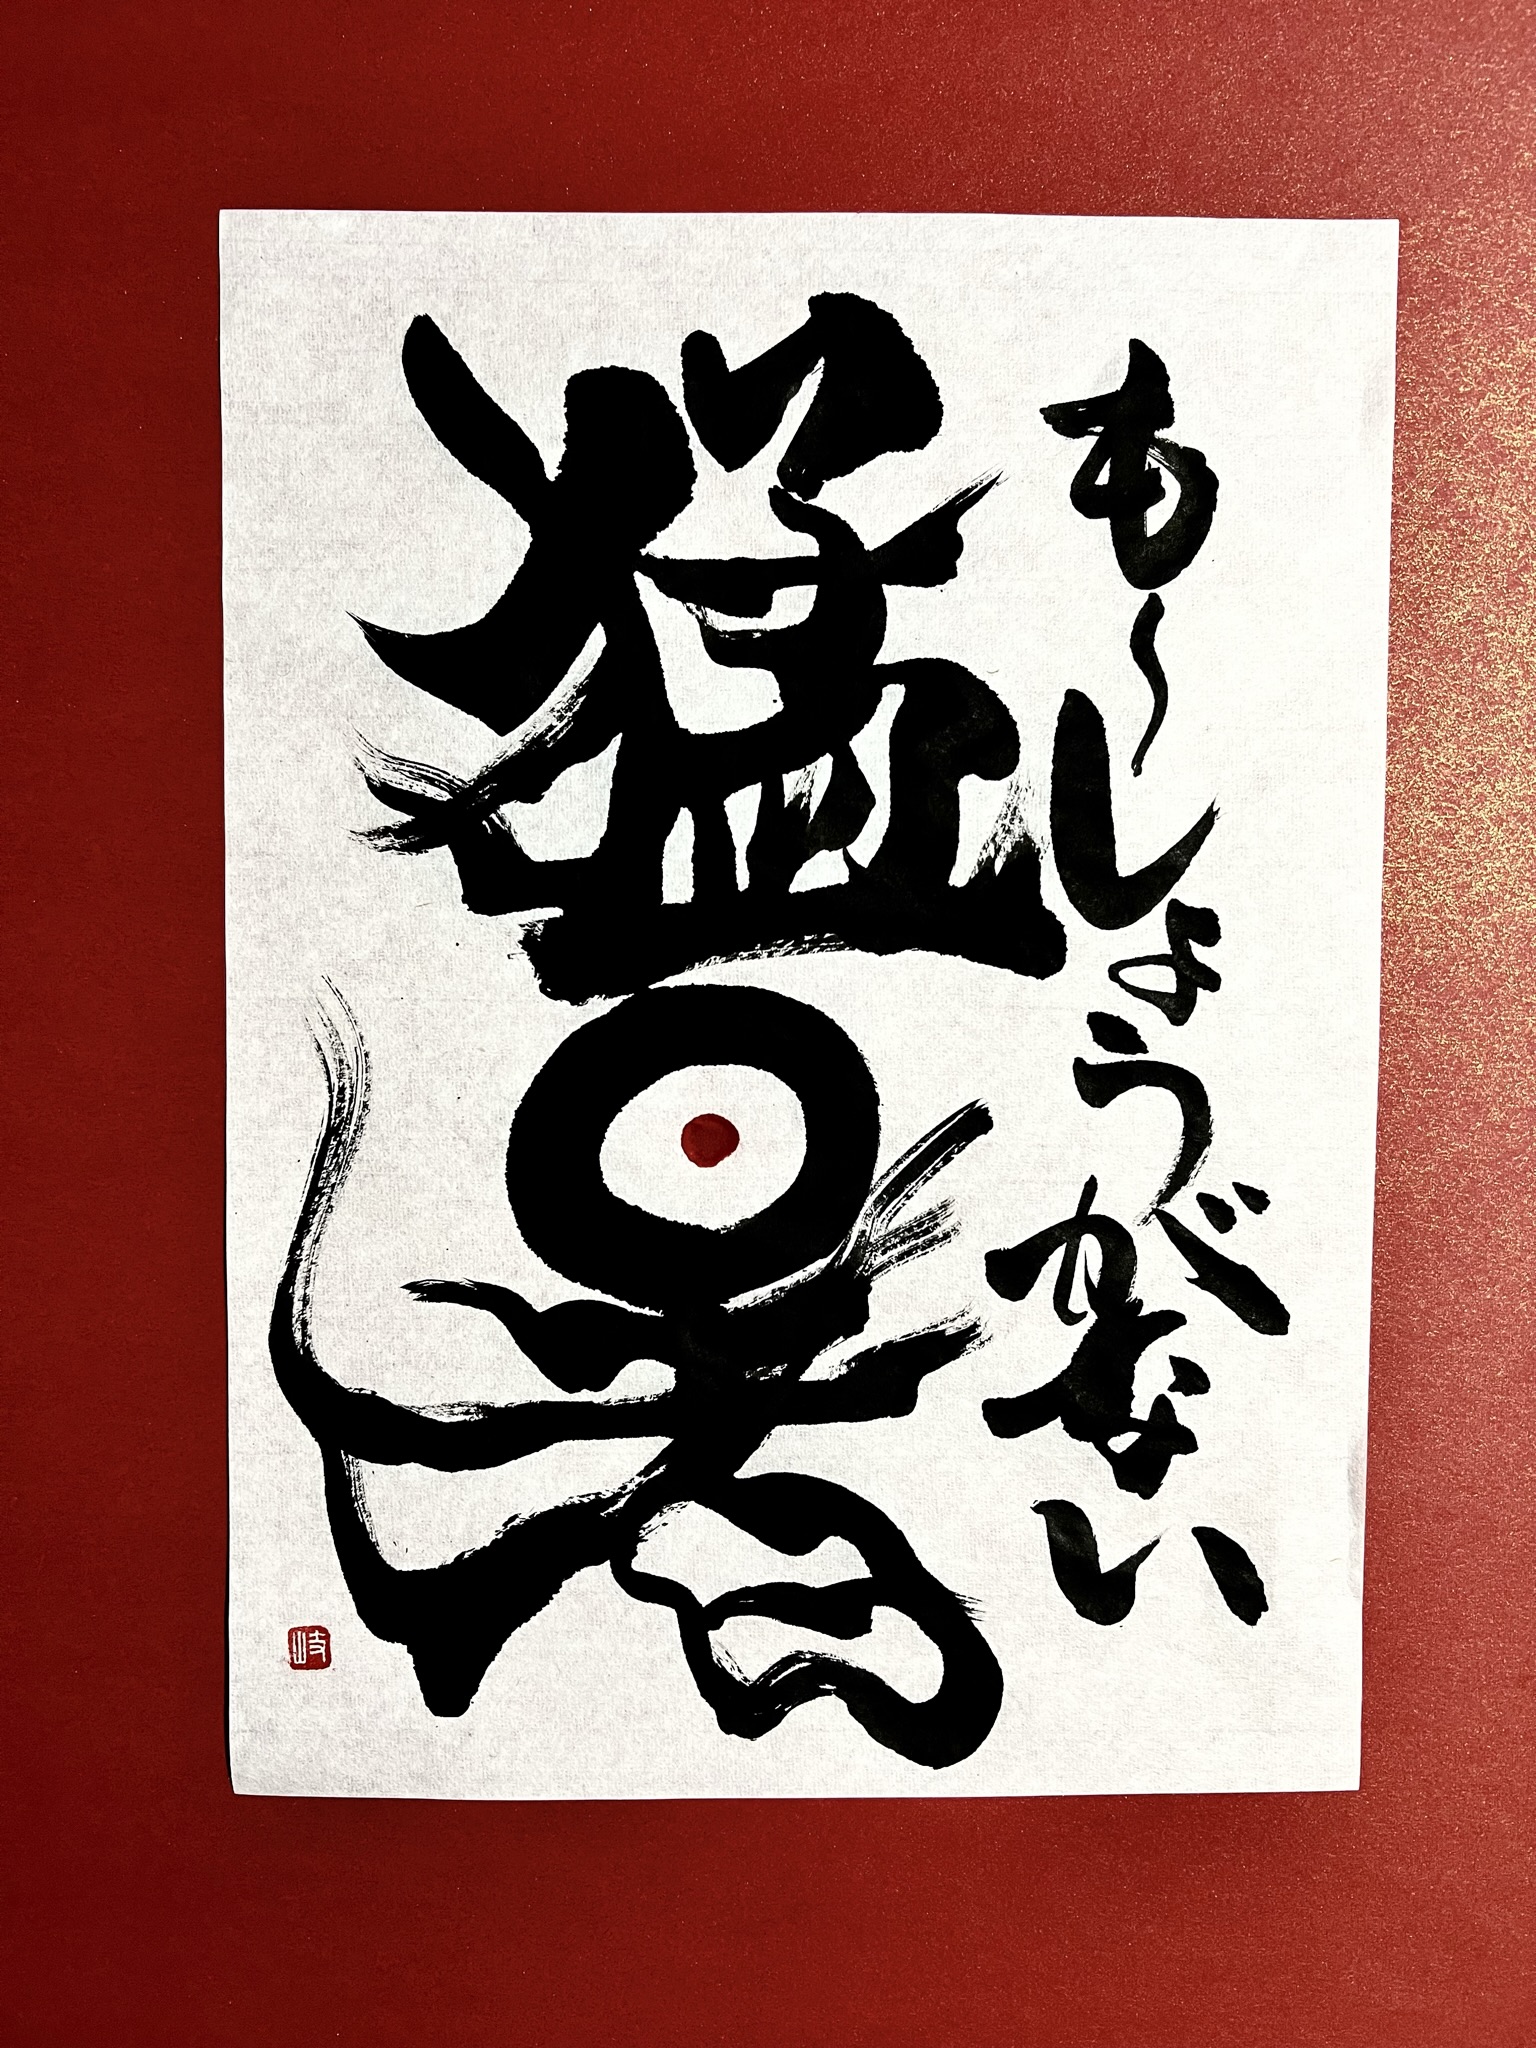 も〜しょうがない
猛暑
岐